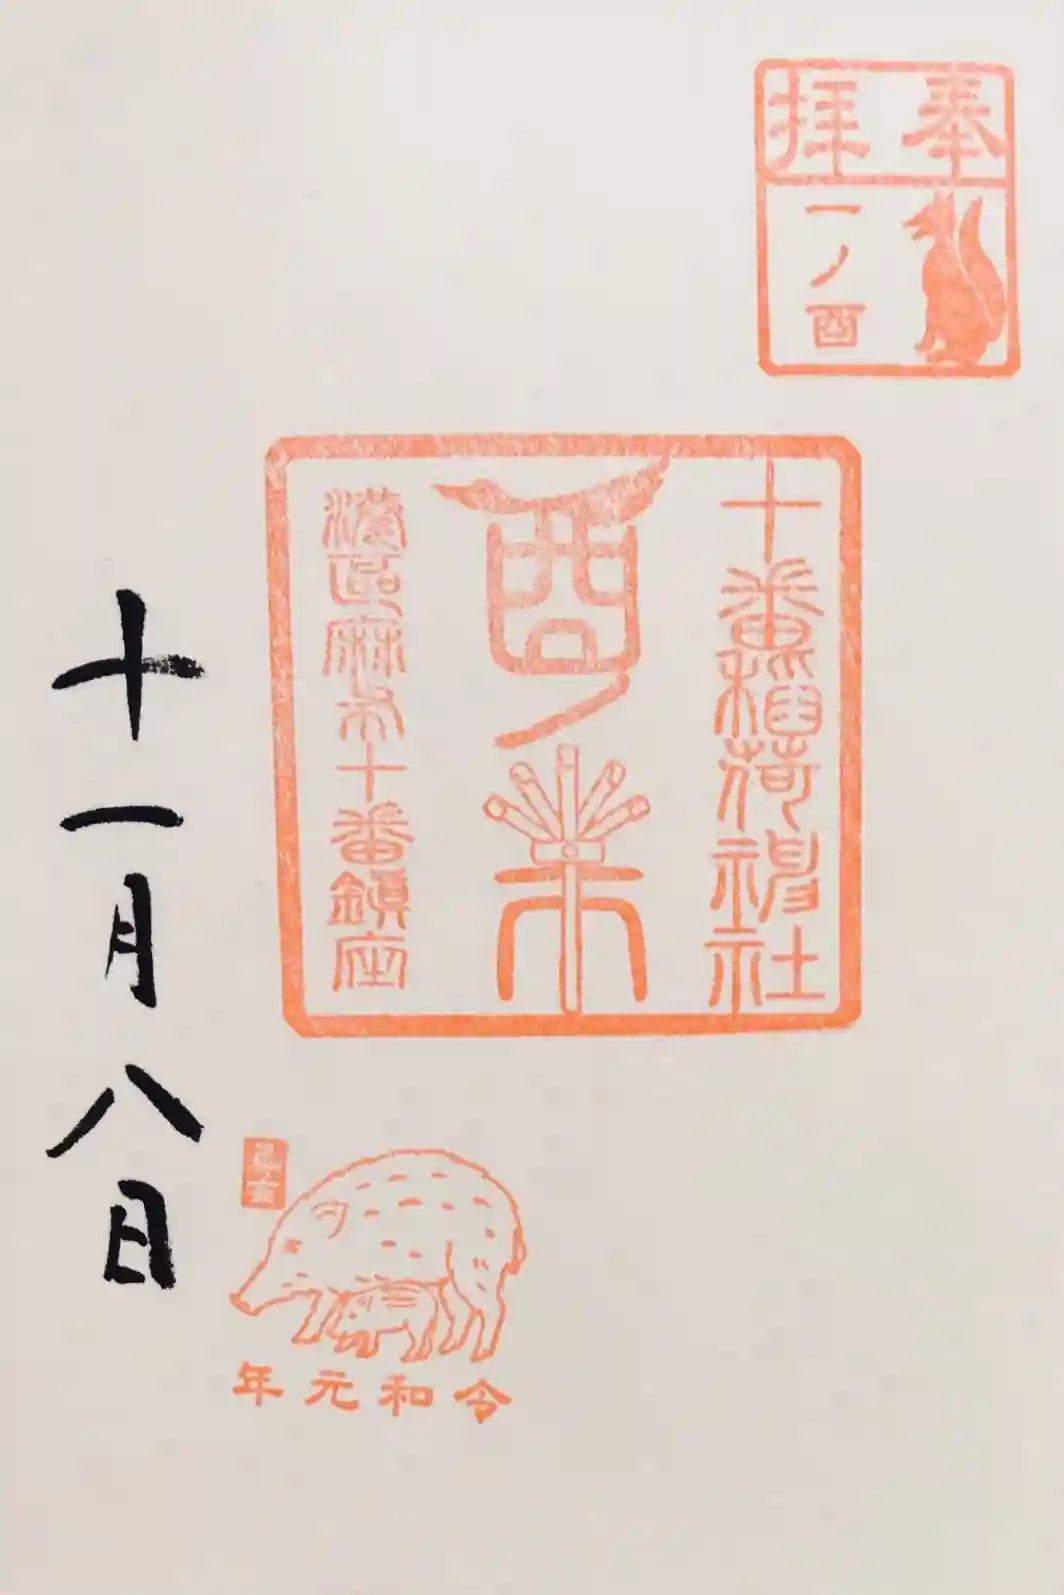 奉拝
一ノ酉
十番稲荷神社
酉ノ市
港區麻布十番鎮座
十一月八日
己亥
令和元年